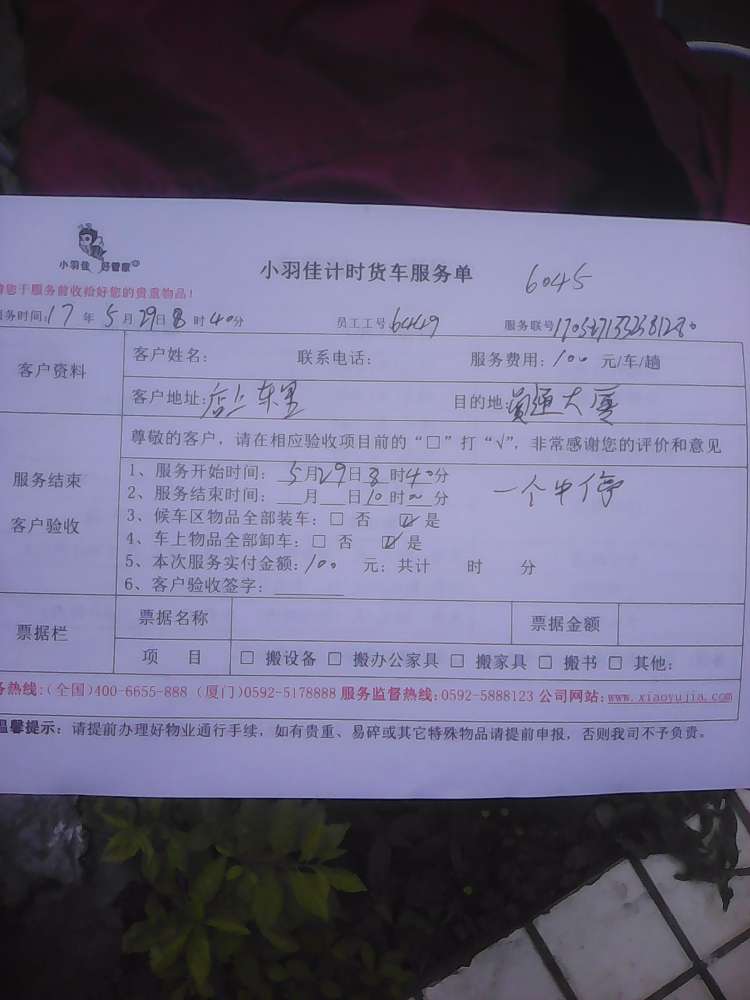 小羽佳 好管家
小羽佳计时货车服务单 6045
请您于服务前收拾好您的贵重物品！
服务时间:17年5月29日8时40分 员工工号6449 服务联号
客户资料
客户姓名： 联系电话： 服务费用：100元/车/趟
客户地址：店上东里 目的地：圆通大厦
服务结束
客户验收
尊敬的客户，请在相应验收项目前的“□”打“√”，非常感谢您的评价和意见
1、服务开始时间：5月29日8时40分
2、服务结束时间：__月__日10时00分 一个中停
3、候车区物品全部装车：□ 否 ☑是
4、车上物品全部卸车：□ 否 ☑是
5、本次服务实付金额：100 元；共计 时 分
6、客户验收签字：
票据栏
票据名称 票据金额
项 目 □ 搬设备 □ 搬办公家具 □ 搬家具 □ 搬书 □ 其他：
务热线:(全国)400-6655-888 (厦门)0592-5178888 服务监督热线:0592-5888123 公司网站:www.xiaoyujia.com
温馨提示：请提前办理好物业通行手续，如有贵重、易碎或其它特殊物品请提前申报，否则我司不予负责。